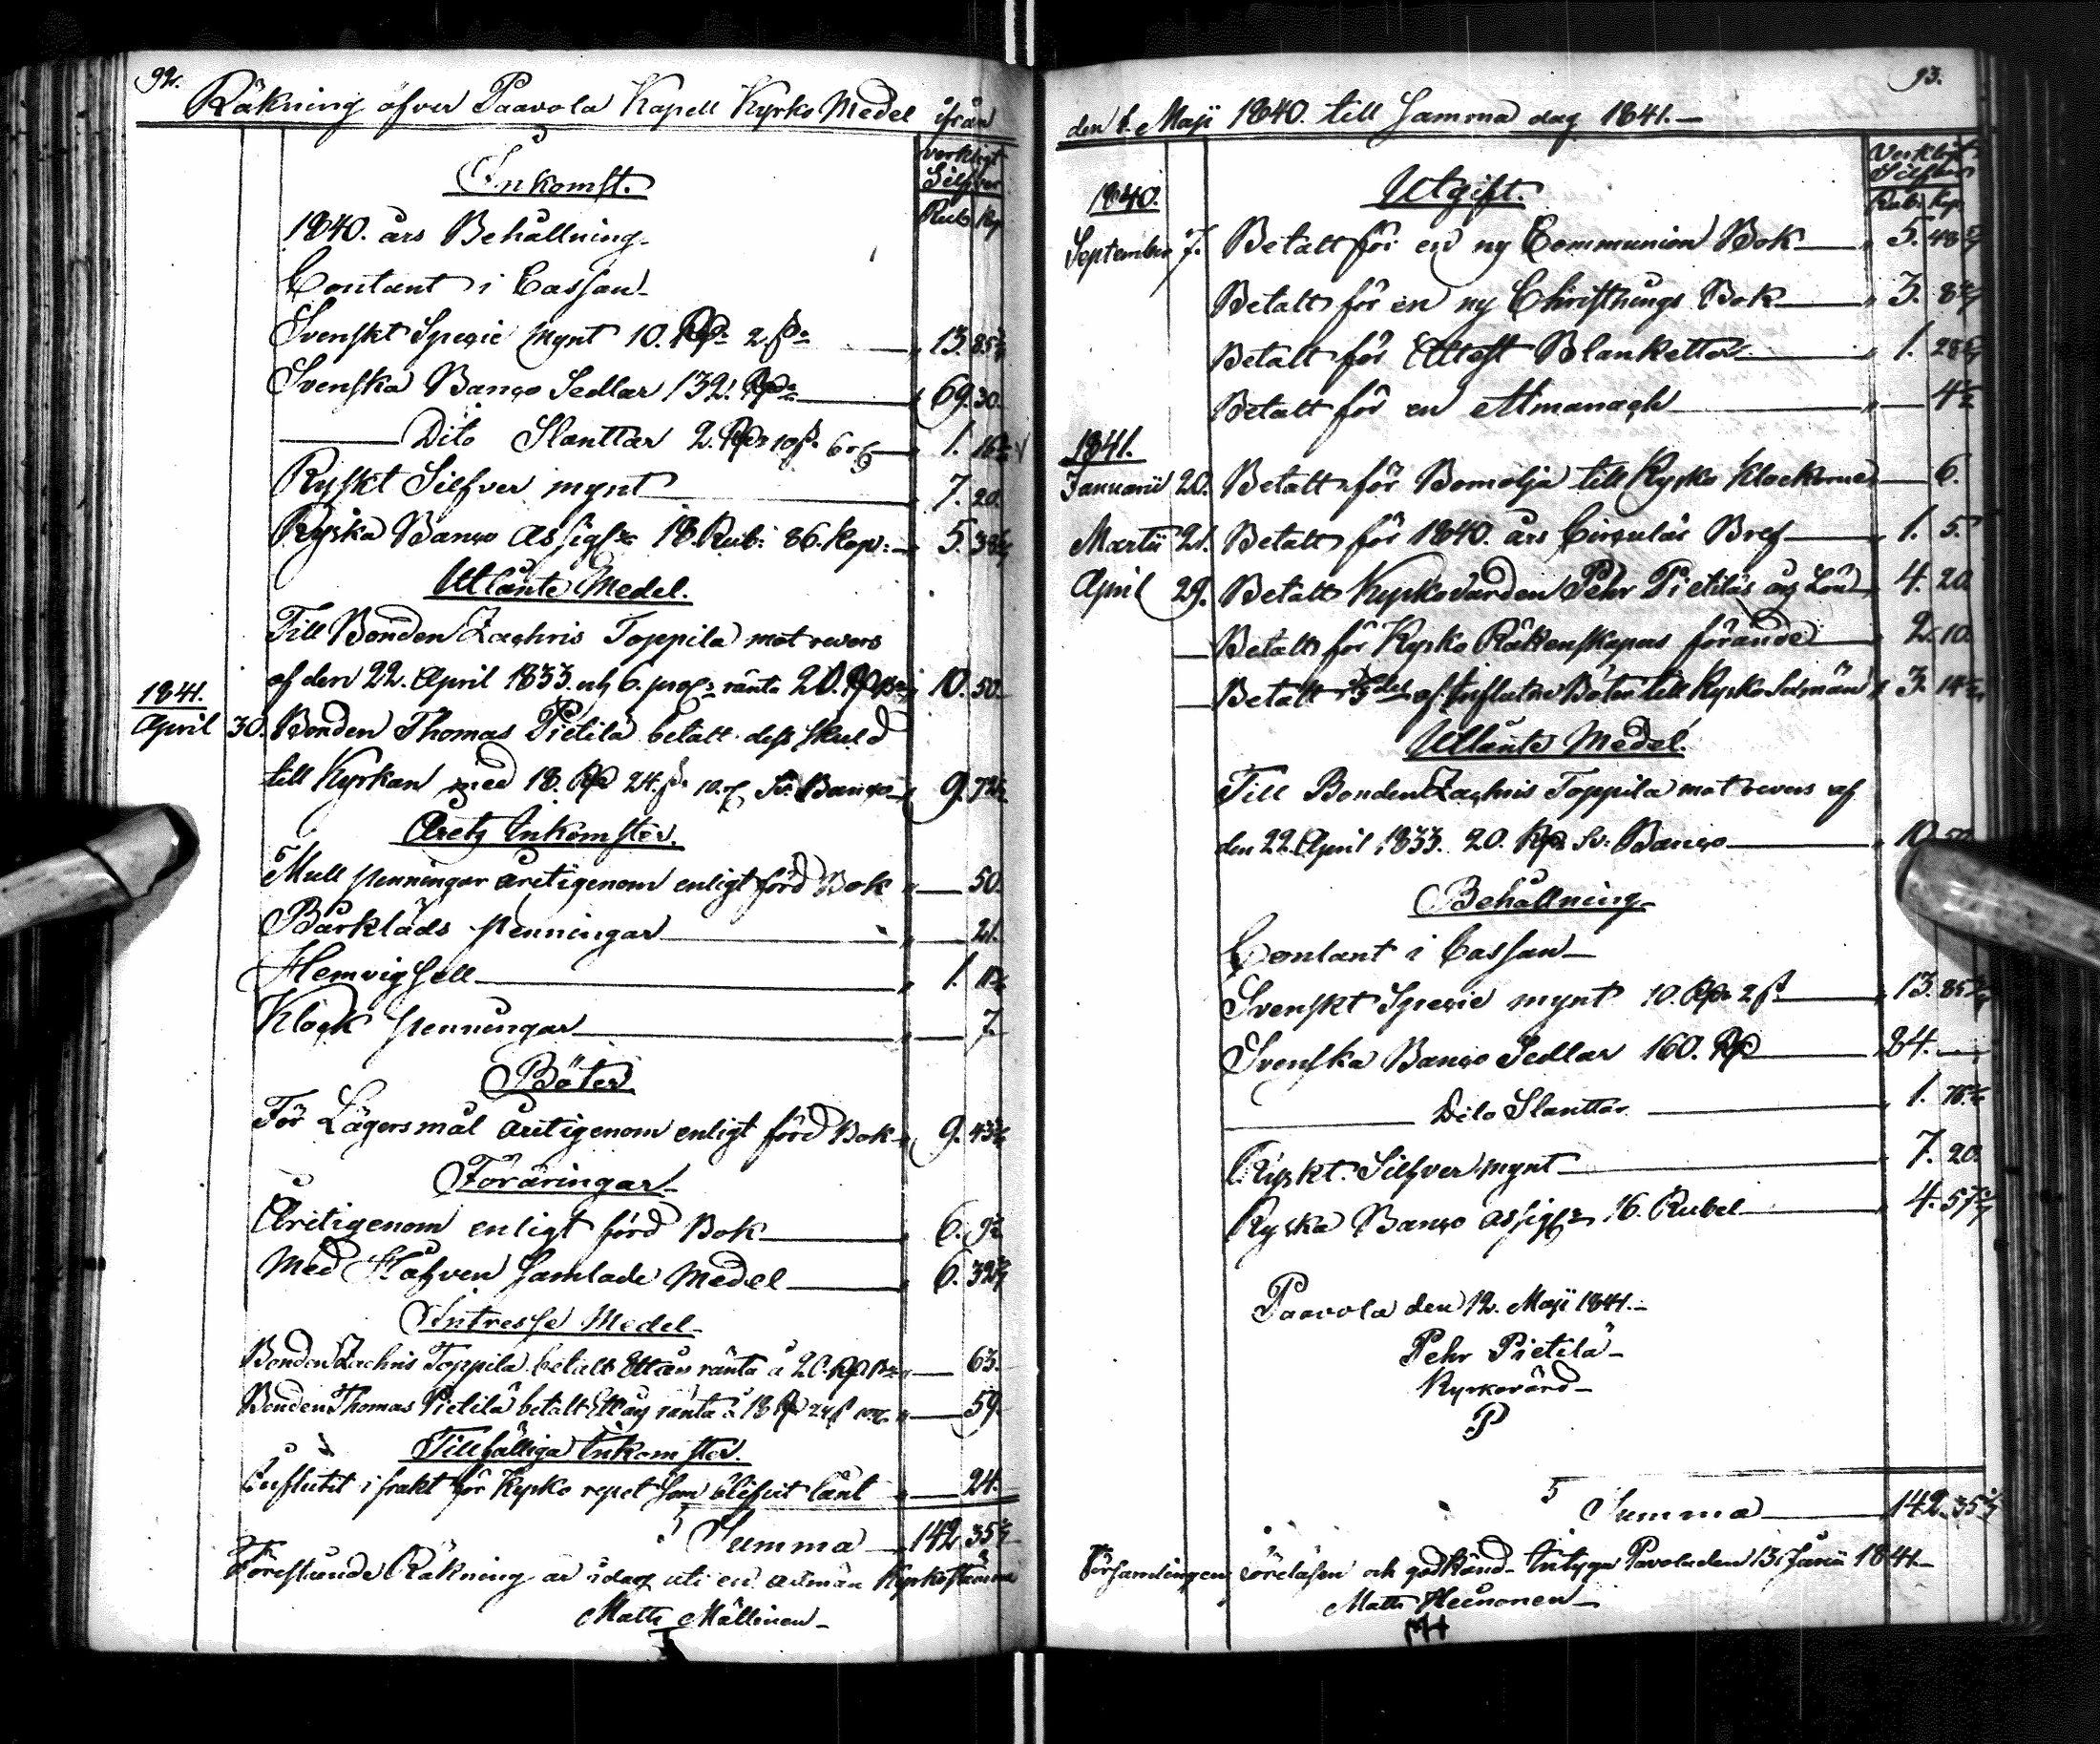 92.
Räkning öfver Paavola Kapell Kyrko Medel ifrån
verkligt
Silfver
Rub. Kp
Inkomst.
1840. års Behållning.
Contant i Cassan
Svenskt Specie mynt 10. Rd 2 s 13. 85 5/7
Svenska Banco Sedlar 132. Rd 69. 30.
Dito Slanttar 2. Rd 10 s. 6 r 1. 16
Ryskt Silfver mynt 7. 20.
Ryska Banco Assig 18. Rub: 86. Kop: 5. 38 6/7
Utlånte Medel.
Till Bonden Zachris Toppila mot revers
af den 22. April 1833. och 6. proc ränta 20. Rd 10. 50.
1841.
April 30. Bonden Thomas Pietilä betalt dess skuld
till Kyrkan med 18. Rd 24. s. 10. r Sv: Banco 9. 72
Årets Inkomster.
Mull penningar åretigenom enligt förd Bok 50.
Bårkläds penningar 21.
Hemvigsell 1.
Klock penningar 7.
Böter
För Lägersmål åretigenom enligt förd Bok 9. 43
Föräringar
Åretigenom enligt förd Bok 6.
Med Håfven samlade Medel 6. 39
Intresse Medel
Bonden Zachris Toppila betalt Ett års ränta å 20. Rd Bco 63.
Bonden Thomas Pietilä betalt Ett års ränta å 18 Rd 24 s 10 r 59.
Tillfälliga Inkomster.
Influtit i frakt för Kyrko repet som blifvit lånt 24.
Summa 142. 35 5/7
Förestående Räkning är idag uti en allmän Kyrkostämma
Matts Mällinen
93.
den 1. Maji 1840. till samma dag 1841.
Verkligt
Silfver
Rub. Kop.
1840.
Utgift.
September 7. Betalt för en ny Communion Bok 5. 48
Betalt för en ny Christnings Bok 3. 8
Betalt för Attest Blanketter 1. 28
Betalt för en Almanach 4
1841.
Januarii 20. Betalt för Bomolja till Kyrko Klockorne 6.
Martii 21. Betalt för 1840. års Circulär Bref 1. 5.
April 29. Betalt Kyrkovärden Pehr Pietiläs års Lön 4. 20
Betalt för Kyrko Räkenskapens förande 2. 10.
Betalt af influtne Böter till Kyrko 3. 14
Utlånte Medel.
Till Bonden Zachris Toppila mot revers af
den 22. April 1833. 20. Rd Sv: Banco 10. 50
Behållning
Contant i Cassan
Svenskt Specie mynt 10. Rd 2 s 13. 85 5/7
Svenska Banco Sedlar 160. Rd 84.
Dito Slanttar 1.
Ryskt Silfver mynt 7. 20.
Ryska Banco assig 16. Rubel 4. 57 1/7
Paavola den 12. Maji 1841.
Pehr Pietilä
Kyrkovärd
P
Summa 142. 35 5/7
Församlingen föreläsen och godkänd. Intyga Pavola den 13 Junii 1841.
Matts Heinonen
MH